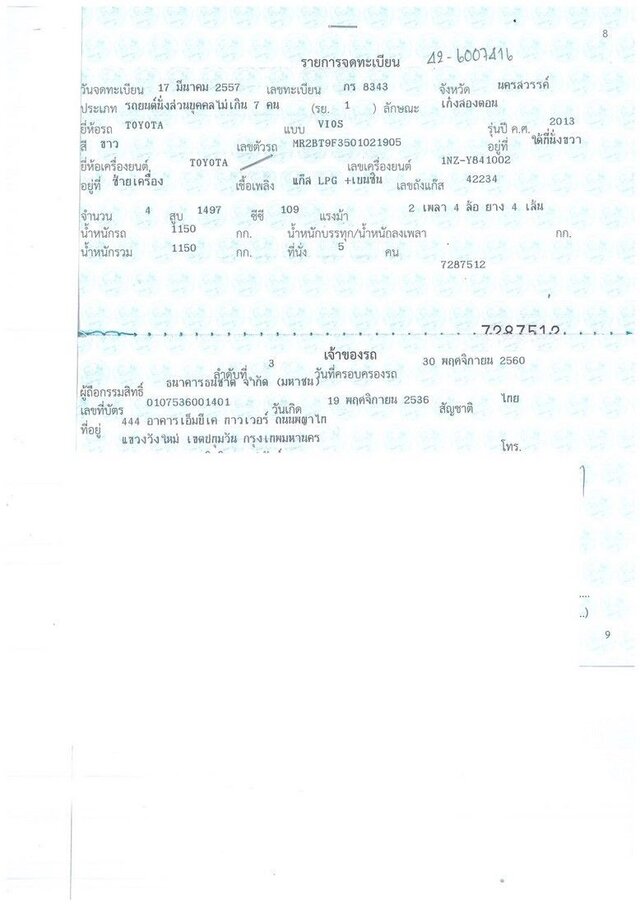 8
รายการจดทะเบียน 42-6007416
วันจดทะเบียน 17 มีนาคม 2557 เลขทะเบียน กร 8343 จังหวัด นครสวรรค์
ประเภท รถยนต์นั่งส่วนบุคคลไม่เกิน 7 คน (รย. 1 ) ลักษณะ เก๋งสองตอน
ยี่ห้อรถ TOYOTA แบบ VIOS รุ่นปี ค.ศ. 2013
สี ขาว เลขตัวรถ MR2BT9F3501021905 อยู่ที่ ใต้ที่นั่งขวา
ยี่ห้อเครื่องยนต์ TOYOTA เลขเครื่องยนต์ 1NZ-Y841002
อยู่ที่ ซ้ายเครื่อง เชื้อเพลิง แก๊ส LPG +เบนซิน เลขถังแก๊ส 42234
จำนวน 4 สูบ 1497 ซีซี 109 แรงม้า 2 เพลา 4 ล้อ ยาง 4 เส้น
น้ำหนักรถ 1150 กก. น้ำหนักบรรทุก/น้ำหนักลงเพลา กก.
น้ำหนักรวม 1150 กก. ที่นั่ง 5 คน
7287512
7287512
เจ้าของรถ
ลำดับที่ 3 วันที่ครอบครองรถ 30 พฤศจิกายน 2560
ผู้ถือกรรมสิทธิ์ ธนาคารธนชาต จำกัด (มหาชน)
เลขที่บัตร 0107536001401 วันเกิด 19 พฤศจิกายน 2536 สัญชาติ ไทย
ที่อยู่ 444 อาคารเอ็มบีเค ทาวเวอร์ ถนนพญาไท
แขวงวังใหม่ เขตปทุมวัน กรุงเทพมหานคร โทร.
....
..)
9